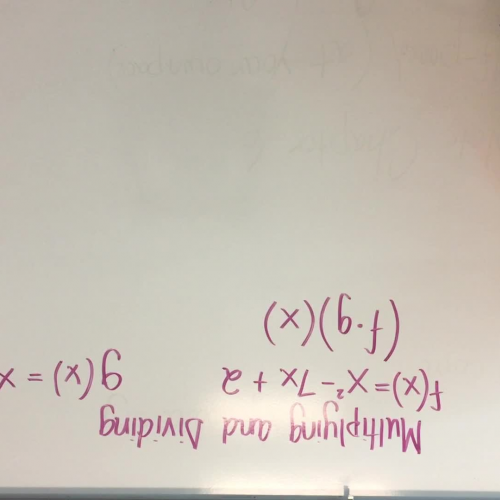 Multiplying and Dividing
f(x)=x²-7x+2 g(x) = x
(f·g)(x)